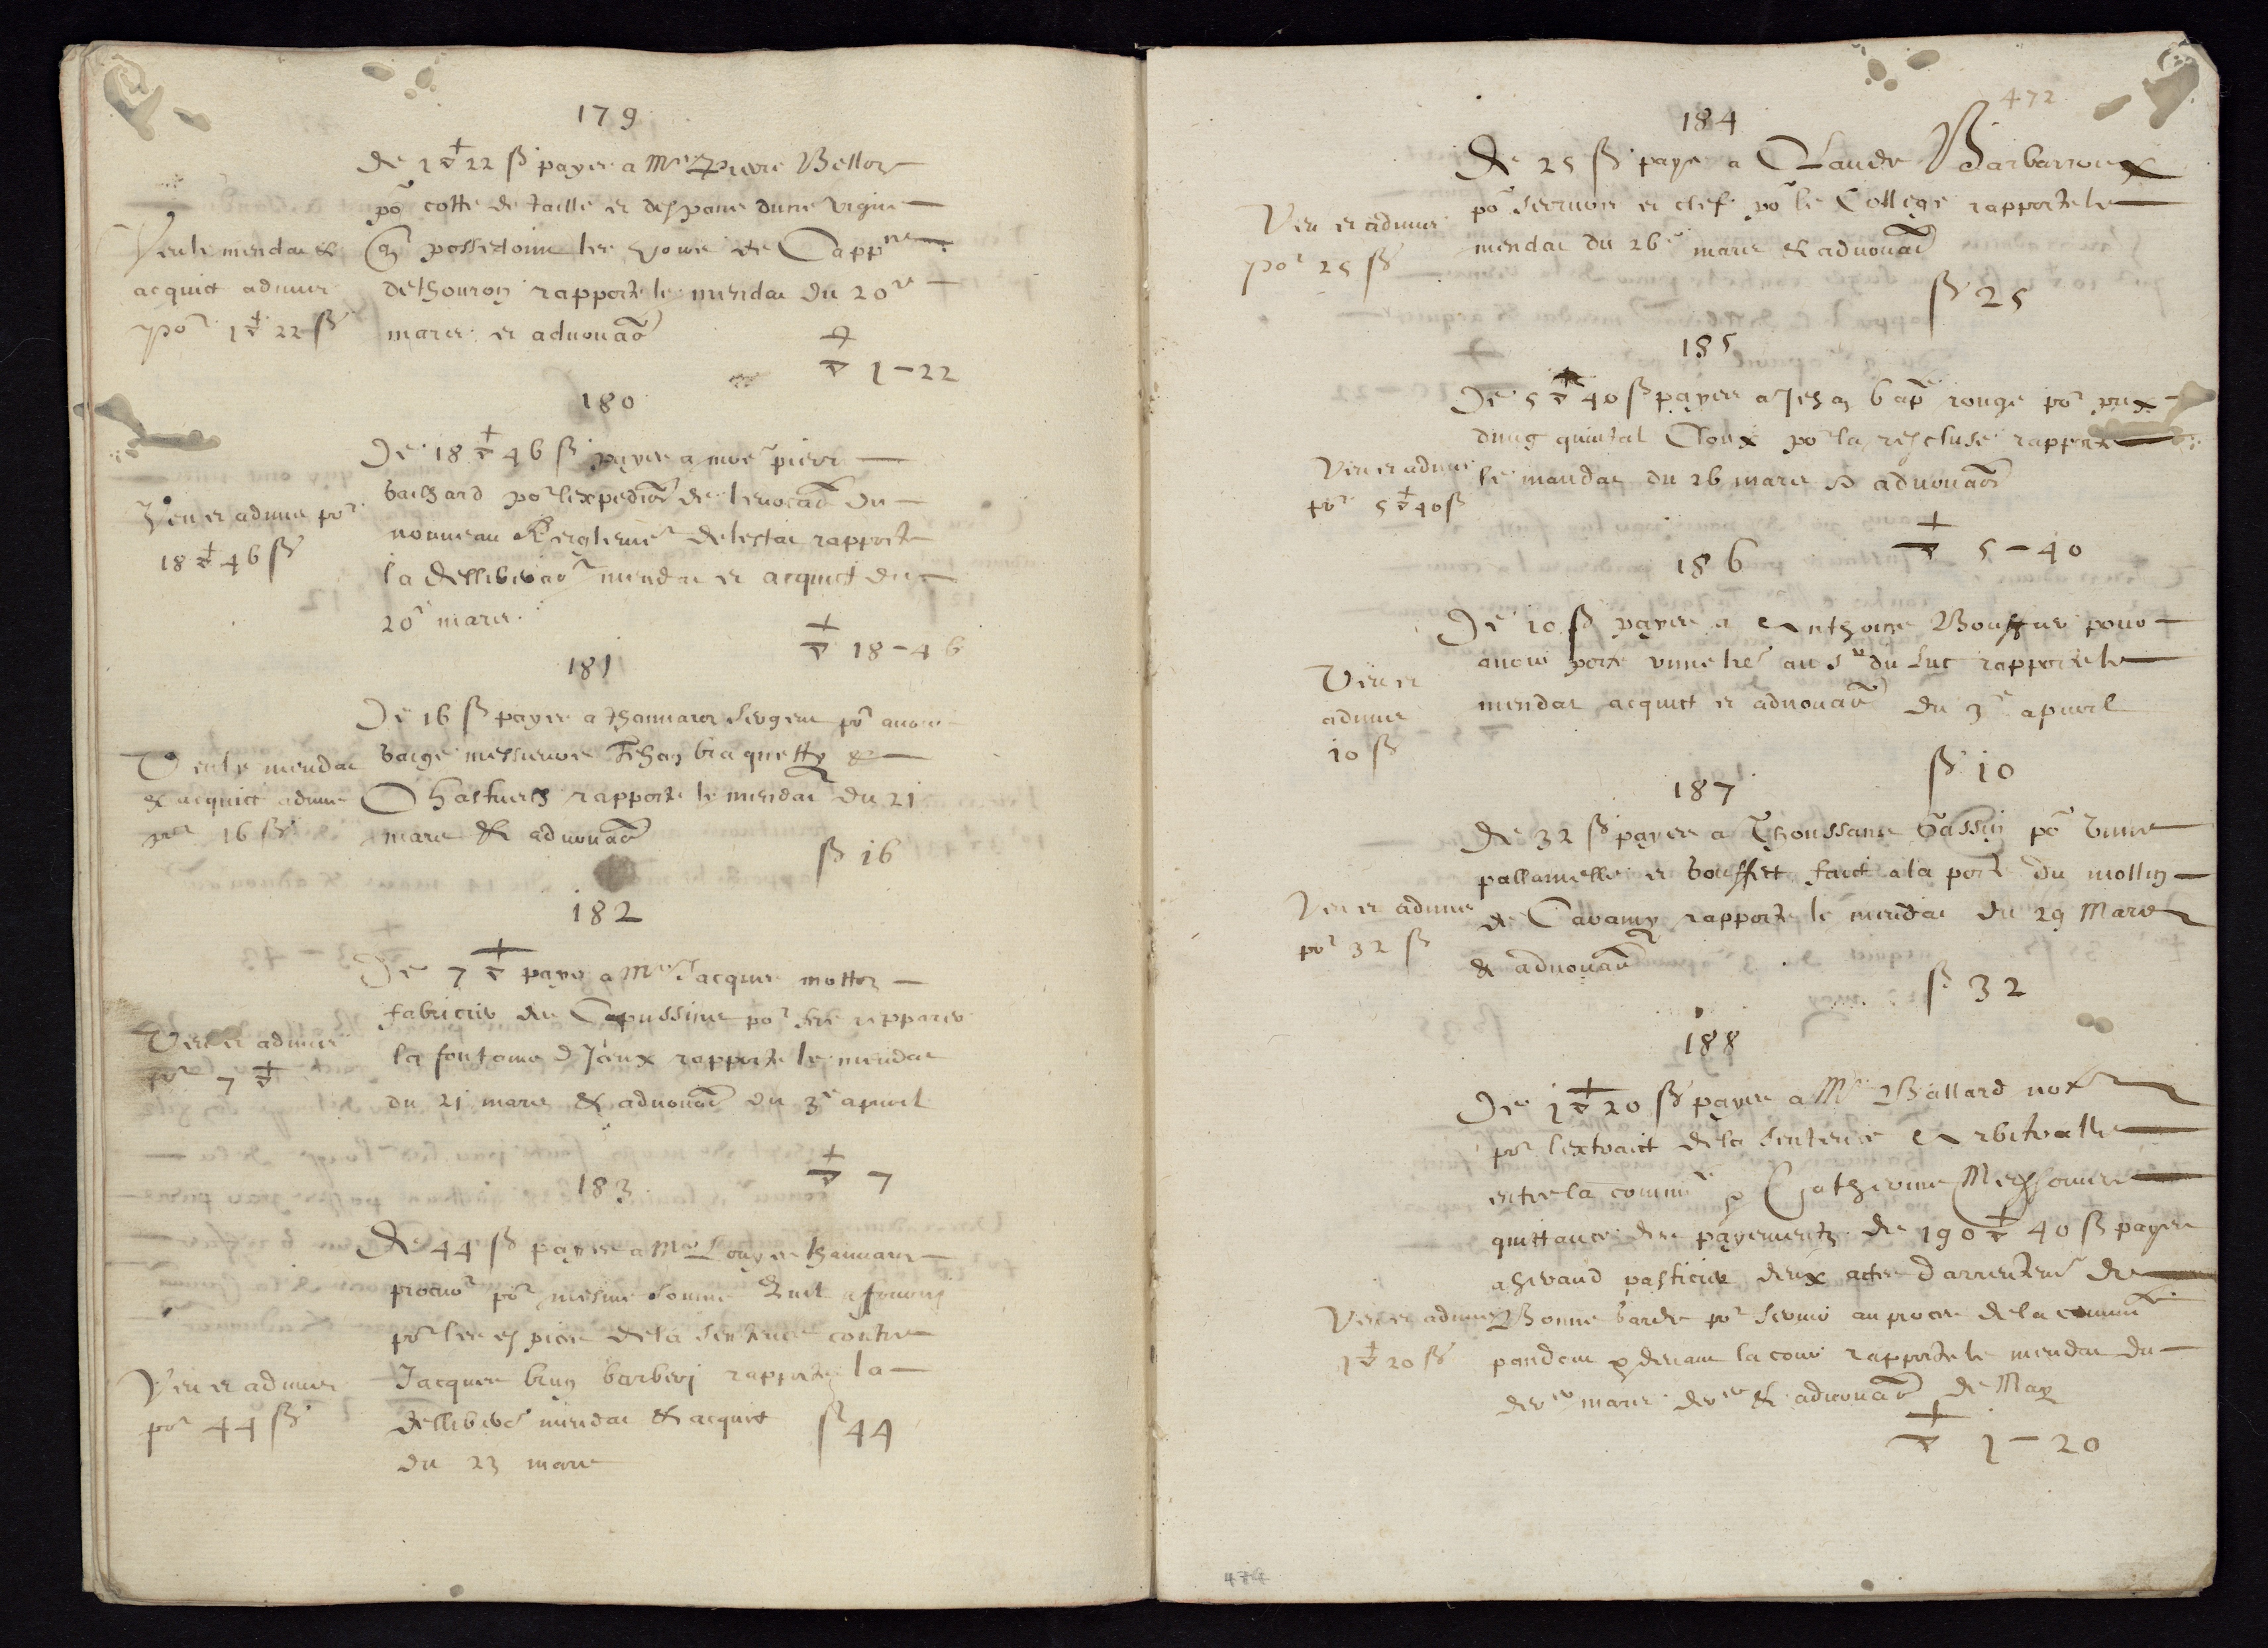 179
De 1 ▽ 22 ß payez a Mre Pierre Bellot
po cotte de taille et despans dune vigne
possedoint les de Capp
Veu le mendat &
acquict admis
por 1 ▽ 22 ß
dethouron rapporte le mendat du 20e
mars et advouaon
▽ 1 - 22
180
De 18 ▽ 46 ß payez a moe pierre
bailhard por lexpedion de levocaon du
nouveau Reiglemet delestat rapporte
la delliberaon mendat et acquict du
20e mars
Veu et admis por
18 ▽ 46 ß
▽ 18 - 46
181
De 16 ß payez a thannaron sergent por avoir
messieurs Jehan braquetty &
Chastueilh rapporte le mendat du 21
mars & advouaon
Veu le mendat
& acquict admis
por 16 ß
ß 16
182
De 7 ▽ payez a Mre Jacques motton
fabricier des Capussins por fere repparer
la fontaine dJeaux rapporte le mendat
du 21 mars & advouaon du 3e apvril
Veu et admis
por 7 ▽
▽ 7
183
De 44 ß payez a Mre Louys thannaron
procur por mesme somme quil a fourny
por les espices de la sentence contre
Jacques brun barbier rapporte la
delliberaon mendat & acquict
du 23 mars
Veu et admis
por 44 ß
ß 44
472
184
De 25 ß paye a Claude Barbarroux
po serrure et clef po le College rapporte le
mendat du 26e mars & advouaon
Veu et admis
por 25 ß
ß 25
185
De 5 ▽ 40 ß payez a Jehan bape rouge por prix
dung quintal Cloux po la rescluse rapporte
le mandat du 26 mars & advouaon
Veu et admis
por 5 ▽ 40 ß
▽ 5 - 40
186
De 10 ß payez a Anthoine pour
avoir porte vune lre au sr du Luc rapporte le
mendat acquict et advouaon du 3e apvril
Veu et
admis
10 ß
ß 10
187
De 32 ß payez a Thoussans Gassin po vune
pallamelle et bouffet faict a la porte du mollin
de Caramy rapporte le mendat du 29 Mars
& advouaon
Veu et admis
por 32 ß
ß 32
188
De 1 ▽ 20 ß payez a Me Ballard notre
por lextraict de la sentence Arbitralle
entre la commte & Catherine Meyssonniere
quittance des payementz de 190 ▽ 40 ß payes
a hevaud pasticier deux actes darrentemt de
Bonne garde por servir au proces de la commte
pandent pdevant la cour rapporte le mendat du
der mars der & advouaon de May
Veu et admis
1 ▽ 20 ß
▽ 1 - 20
474